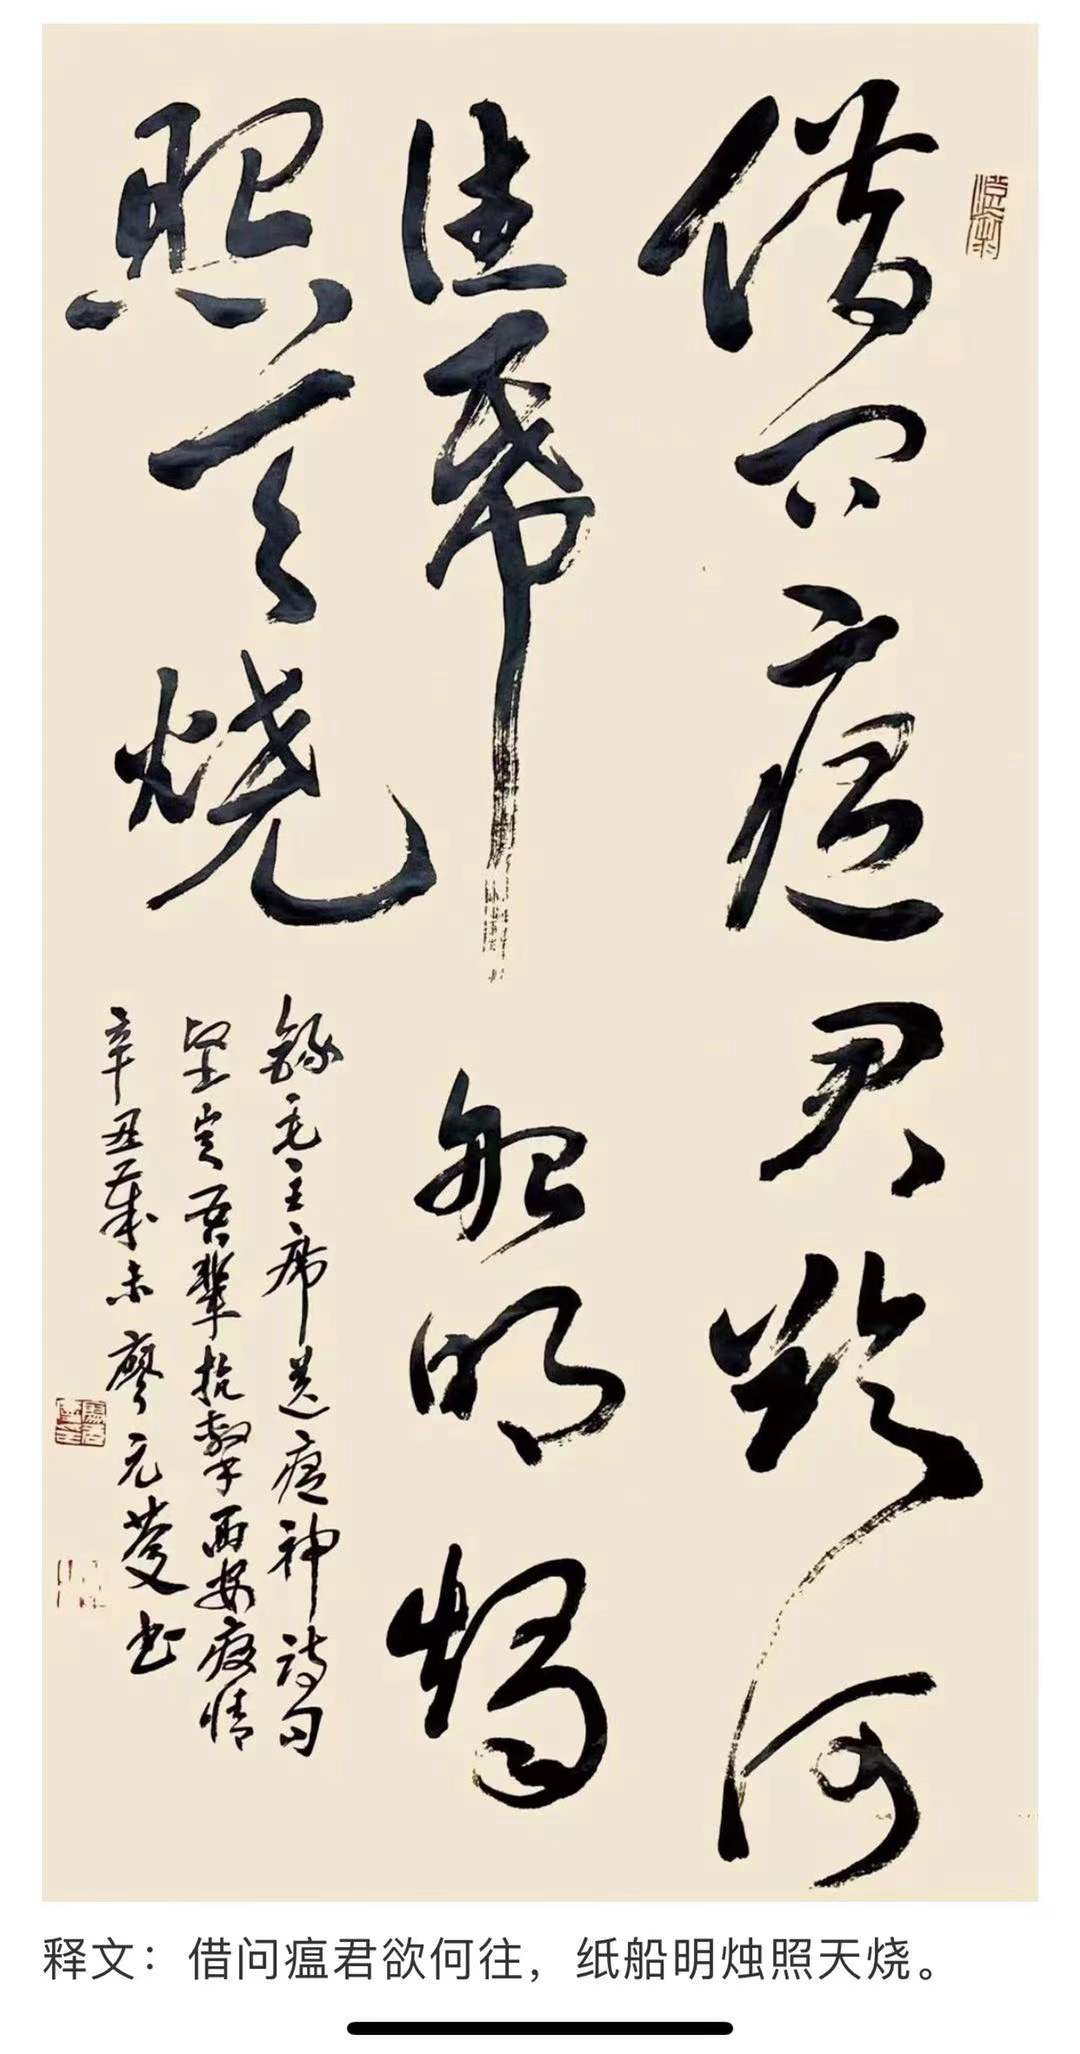 借问瘟君欲何
往帋船明烛
照天烧
録毛主席送瘟神诗句
坚定吾辈抗击西安疫情
辛丑岁末廖元夔书
释文：借问瘟君欲何往，纸船明烛照天烧。